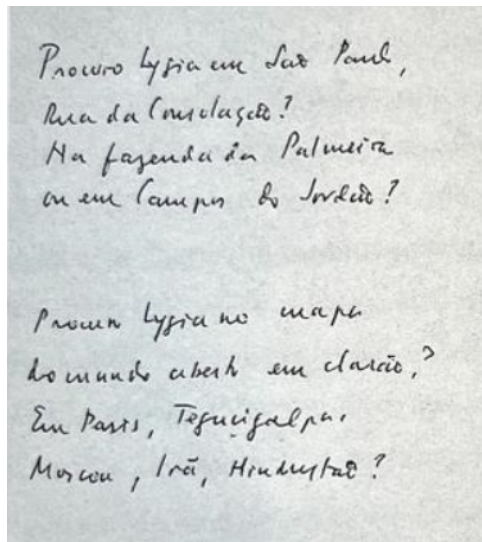 Procuro Lygia em São Paulo,
Rua da Consolação?
Na fazenda da Palmeira
ou em Campos do Jordão?
Procuro Lygia no mapa
do mundo aberto em clarão,?
Em Paris, Tegucigalpa,
Moscou, Irã, Hindustão?